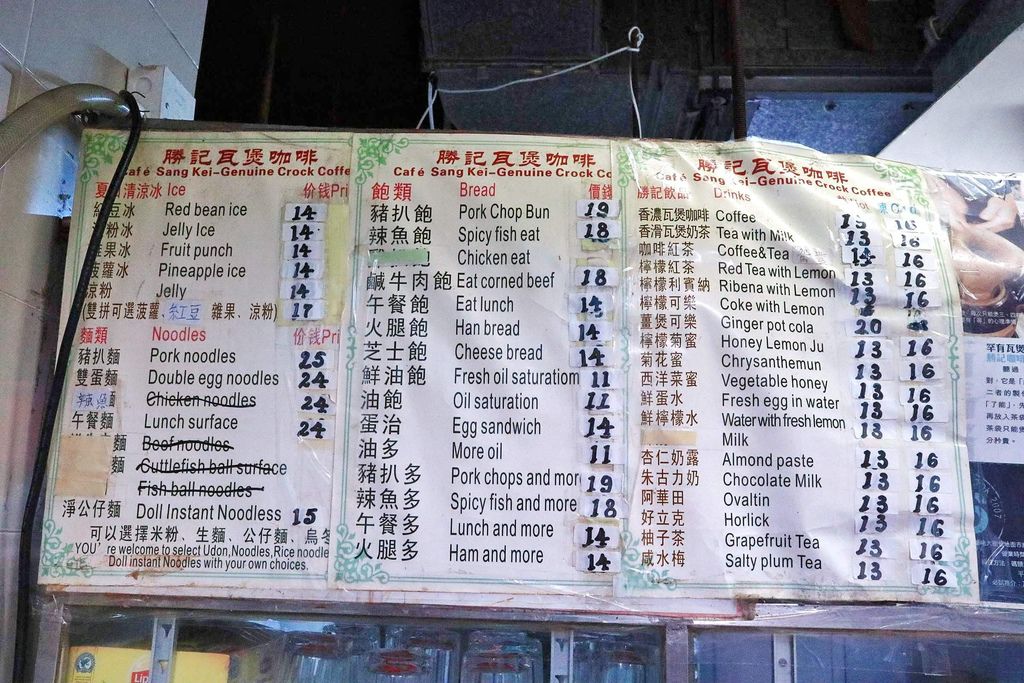 勝記瓦煲咖啡
Café Sang Kei-Genuine Crock Coffe
夏 清涼冰 Ice 价钱Pri
豆冰 Red bean ice 14
粉冰 Jelly Ice 14
果冰 Fruit punch 14
菠蘿冰 Pineapple ice 14
涼粉 Jelly 14
(雙拼可選菠蘿、紅豆 雜果、涼粉) 17
麵類 Noodles 价钱Pri
豬扒麵 Pork noodles 25
雙蛋麵 Double egg noodles 24
辣魚麵 Chicken noodles 24
午餐麵 Lunch surface 24
麵 Beef noodles
麵 Cuttlefish ball surface
Fish ball noodles
淨公仔麵 Doll Instant Noodless 15
可以選擇米粉、生麵、公仔麵、烏冬
YOU' re welcome to select Udon,Noodles,Rice noodle
Doll instant Noodles with your own choices.
勝記瓦煲咖啡
Café Sang Kei-Genuine Crock Co
飽類 Bread 價錢
豬扒飽 Pork Chop Bun 19
辣魚飽 Spicy fish eat 18
Chicken eat
鹹牛肉飽 Eat corned beef 18
午餐飽 Eat lunch 14
火腿飽 Han bread 14
芝士飽 Cheese bread 14
鮮油飽 Fresh oil saturatiom 11
油飽 Oil saturation 11
蛋治 Egg sandwich 14
油多 More oil 11
豬扒多 Pork chops and mor 19
辣魚多 Spicy fish and more 18
午餐多 Lunch and more 14
火腿多 Ham and more 14
勝記瓦煲咖啡
Café Sang Kei-Genuine Crock Coffee
勝記飲品 Drinks
香濃瓦煲咖啡 Coffee 16
香滑瓦煲奶茶 Tea with Milk 13 16
咖啡紅茶 Coffee&Tea 14 16
檸檬紅茶 Red Tea with Lemon 13 16
檸檬利賓納 Ribena with Lemon 13 16
檸檬可樂 Coke with Lemon 16
薑煲可樂 Ginger pot cola 20
檸檬菊蜜 Honey Lemon Ju 13 16
菊花蜜 Chrysanthemun 13 16
西洋菜蜜 Vegetable honey 13 16
鮮蛋水 Fresh egg in water 13 16
鮮檸檬水 Water with fresh lemon 13 16
Milk
杏仁奶露 Almond paste 13 16
朱古力奶 Chocolate Milk 13 16
阿華田 Ovaltin 13 16
好立克 Horlick 13 16
柚子茶 Grapefruit Tea 13 16
咸水梅 Salty plum Tea 13 16
罕有瓦煲
勝記咖啡
2007
Lip